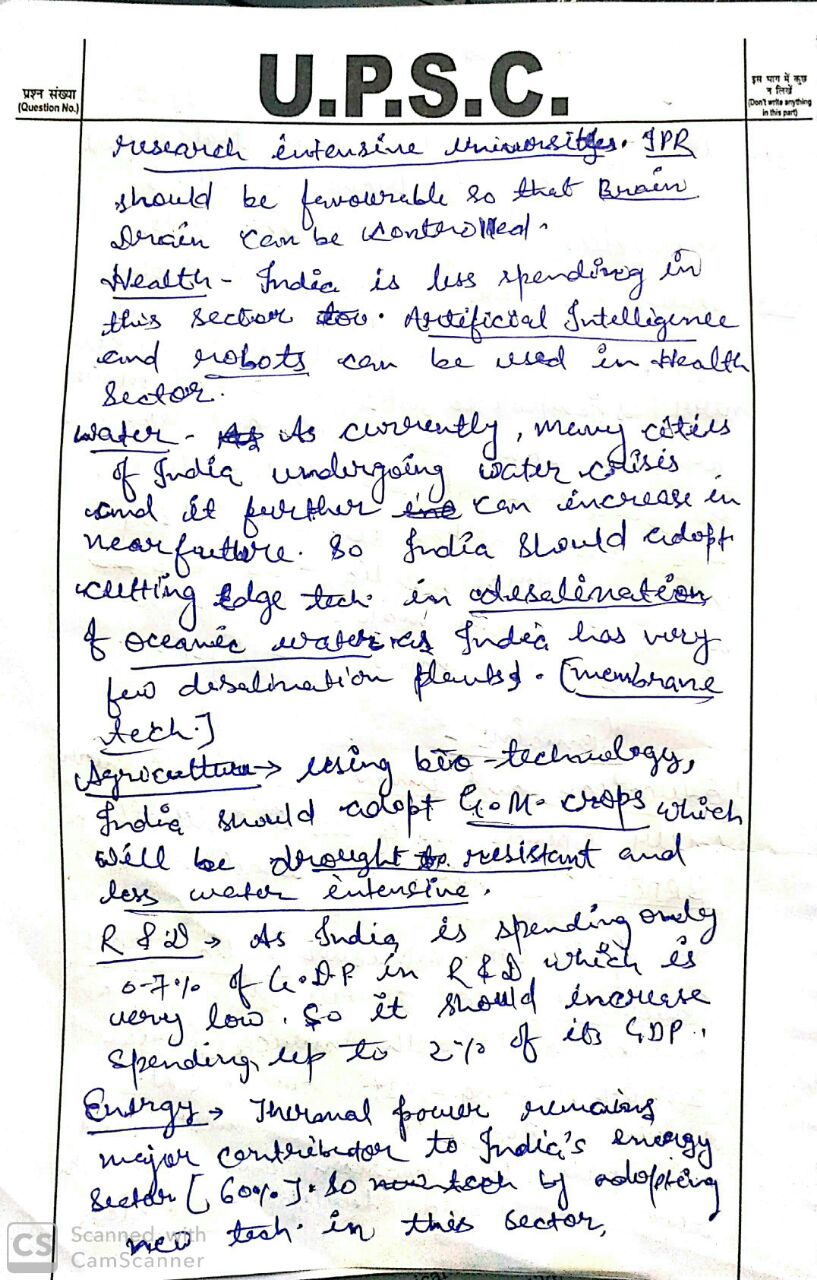 प्रश्न संख्या
(Question No.)
U.P.S.C.
इस भाग में कुछ
न लिखें
(Don't write anything
in this part)
research intensive universities. IPR
should be favourable so that Brain
Drain can be controlled.
Health - India is less spending in
this sector too. Artificial Intelligence
and robots can be used in Health
Sector.
Water - As As currently, many cities
of India undergoing water crisis
and it further inc can increase in
near future. So India should adopt
cutting Edge tech. in desalination
of oceanic water as India has very
few desalination plants. [membrane
tech.]
Agriculture → using bio-technology,
India should adopt G.M. crops which
will be drought resistant and
less water intensive.
R & D → As India is spending only
0.7% of G.D.P. in R & D which is
very low. So it should increase
spending up to 2% of its GDP.
Energy → Thermal power remains
major contributor to India's energy
sector [60%]. So new tech by adopting
new tech. in this sector,
CS Scanned with
CamScanner